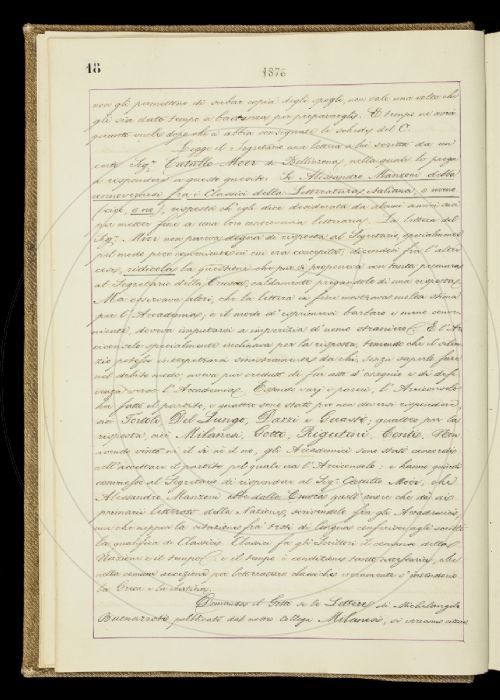 18
1876
non gli permettono di serbar copia degli spogli, non vale una volta che
gli sia dato tempo a bastanza per prepararglisi. E tempo ne avrà
quanto vuole dopo che si abbia consegnate le schede del C.
Legge il Segretario una lettera a lui scritta da un
certo Sig.r Catullo Moor di Bellinzona, nella quale lo prega
a rispondere a questo quesito: Se Alessandro Manzoni debba
annoverarsi fra i Classici della Letteratura italiana, o meno
(cioè, o no), risposta ch' egli dice desiderata da alcuni amici suoi
per metter fine a una loro controversia letteraria. La lettera del
Sig.r Moor non pareva degna di risposta al Segretario, specialmente
pel modo poco conveniente in cui era concepita; dicendosi fra l'altre
cose, ridicola la questione che pur si proponeva con tanta premura
al Segretario della Crusca, caldamente pregandolo di una risposta.
Ma osservava altri, che la lettera in fine mostrava molta stima
per l'Accademia, e il modo d'esprimersi barbaro e meno conve-
niente, doveva imputarsi a imperizia d'uomo straniero. E l'Ar-
ciconsolo specialmente inclinava per la risposta, temendo che il silen-
zio potesse interpetrarsi sinistramente da chi, senza saperlo fare
nel debito modo, aveva pur creduto di far atto d'ossequio e di defe-
renza verso l'Accademia. Essendo varj i pareri, l'Arciconsolo
ha fatto il partito, e quattro sono stati per non doversi rispondere,
cioè Tortoli, Del Lungo, Dazzi e Guasti; quattro per la
risposta, cioè Milanesi, Gotti, Rigutini, Conti.
avendo vinto nè il sì nè il no, gli Accademici sono stati concordi
nell'accettare il partito pel quale era l'Arciconsolo: e hanno quindi
commesso al Segretario di rispondere al Sig.r Catullo Moor, che
Alessandro Manzoni ebbe dalla Crusca quell'onore che dà ai
primarii letterati della Nazione, ascrivendolo fra gli Accademici,
ma che neppure la citazione fra testi di lingua conferisce agli scritti
la qualifica di Classici. Classici fa gli Scrittori il consenso della
Nazione e il tempo: e il tempo è condizione tanto necessaria, che
nella comune accezione per letterature classiche veramente s'intendono
la Greca e la Latina.
Domandato il Gotti se le Lettere di Michelangelo
Buonarroti, pubblicate dal nostro collega Milanesi, si citeranno